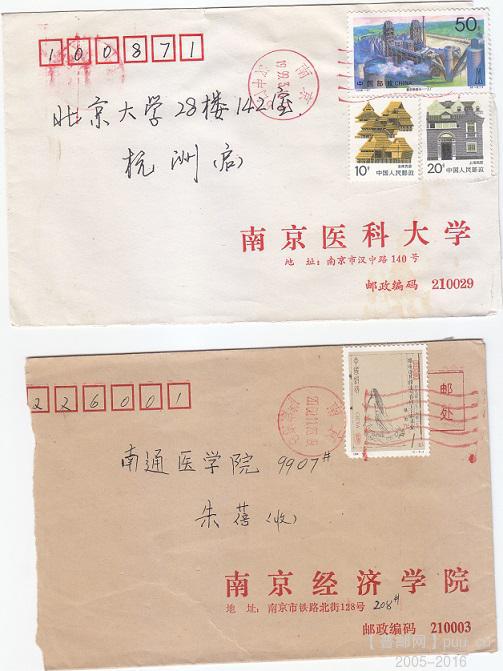 100871
50分
中国邮政 CHINA
北京大学28楼142室
杭洲(启)
10分
中国人民邮政
20分
中国人民邮政
南京医科大学
地 址:南京市汉中路140号
邮政编码 210029
226001
邮
处
南通医学院 9907#
朱蓓(收)
南京经济学院
地 址:南京市铁路北街128号 208#
邮政编码 210003
2005-2016